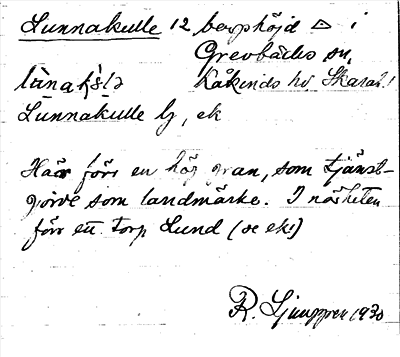 Lunnakulle 12, berghöjd △ i
Grevbäcks sn,
lùnakə̀lə Kåkinds hd Skarab. l.
Lunnakulle lg, ek
Här förr en hög gran, som tjänst-
gjorde som landmärke. I närheten
förr ett torp Lund (se ek!)
R. Ljunggren 1930